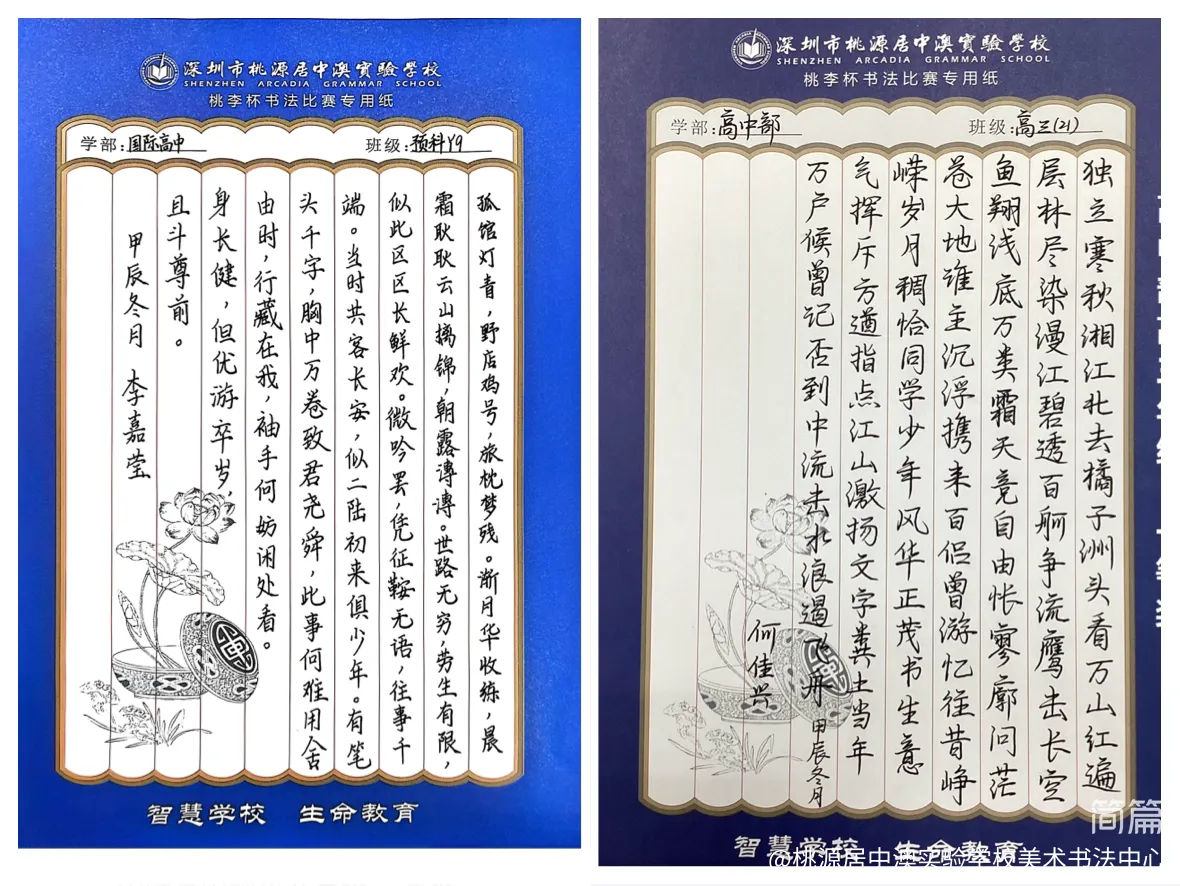 深圳市桃源居中澳實驗學校
SHENZHEN ARCADIA GRAMMAR SCHOOL
桃李杯书法比赛专用纸
学部:国际高中
班级:预科Y9
孤馆灯青，野店鸡号，旅枕梦残。渐月华收练，晨
霜耿耿云山摛锦，朝露漙漙。世路无穷，劳生有限，
似此区区长鲜欢。微吟罢，凭征鞍无语，往事千
端。当时共客长安，似二陆初来俱少年。有笔
头千字，胸中万卷致君尧舜，此事何难用舍
由时，行藏在我，袖手何妨闲处看。
身长健，但优游卒岁，
且斗尊前。
甲辰冬月 李嘉莹
智慧学校 生命教育
深圳市桃源居中澳實驗學校
SHENZHEN ARCADIA GRAMMAR SCHOOL
桃李杯书法比赛专用纸
学部:高中部
班级:高三(21)
独立寒秋湘江北去橘子洲头看万山红遍
层林尽染漫江碧透百舸争流鹰击长空
鱼翔浅底万类霜天竞自由怅寥廓问茫
苍大地谁主沉浮携来百侣曾游忆往昔峥
嵘岁月稠恰同学少年风华正茂书生意
气挥斥方遒指点江山激扬文字粪土当年
万户候曾记否到中流击水浪遏飞舟 甲辰冬月
何佳兴
智慧学校 生命教育
简篇
@桃源居中澳实验学校美术书法中心